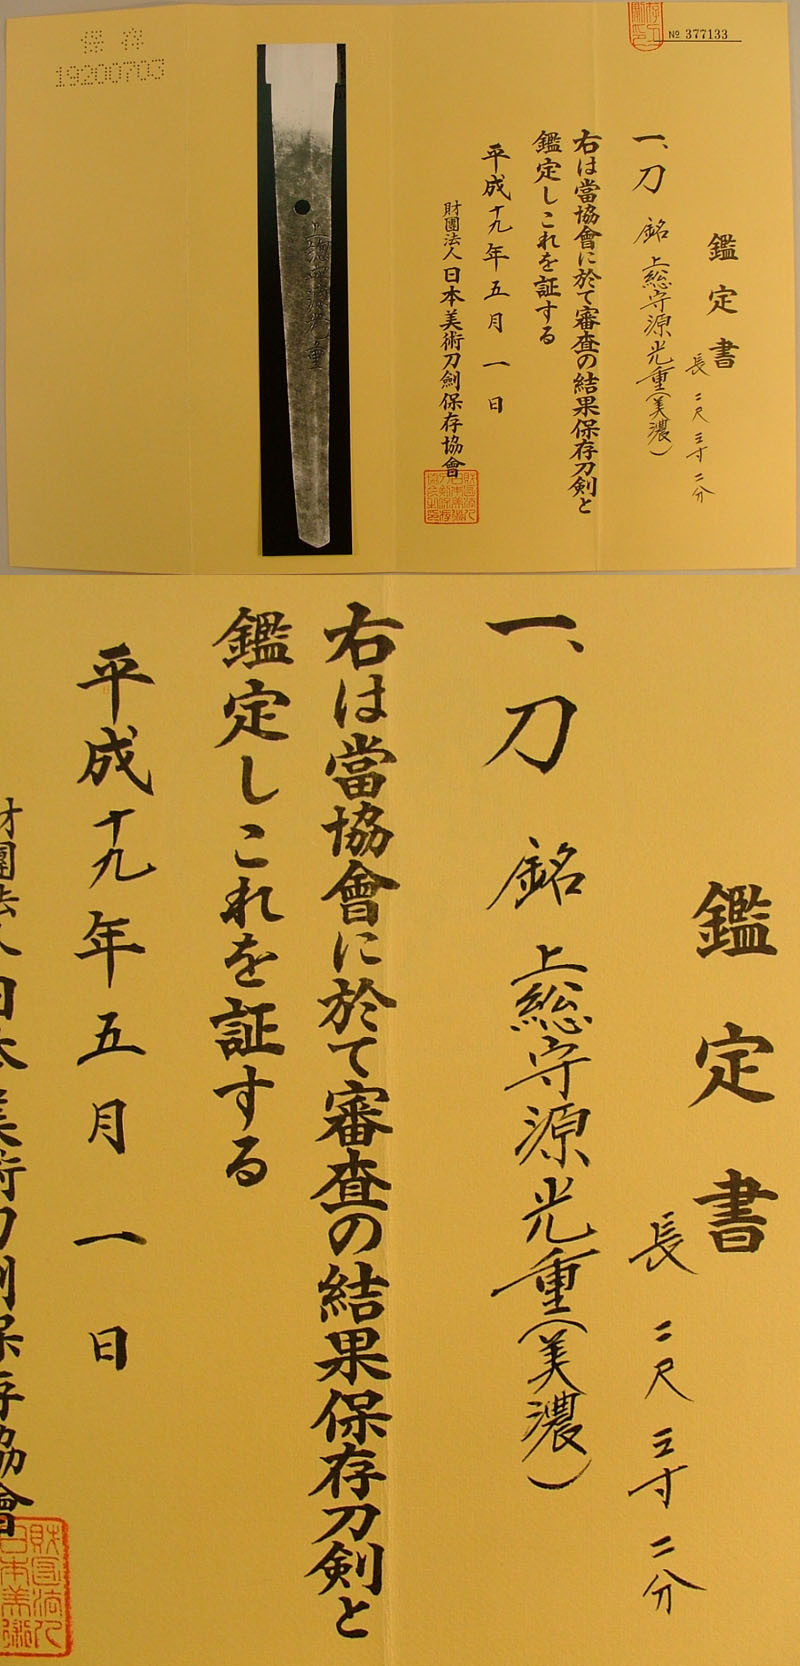 保存
19200703
No 377133
鑑定書
長二尺三寸二分
一、刀 銘 上総守源光重(美濃)
右は當協會に於て審査の結果保存刀剣と
鑑定しこれを証する
平成十九年五月一日
財團法人日本美術刀劍保存協會
上総守源光重
鑑定書
長二尺三寸二分
一、刀 銘 上総守源光重(美濃)
右は當協會に於て審査の結果保存刀剣と
鑑定しこれを証する
平成十九年五月一日
財團法人日本美術刀劍保存協會